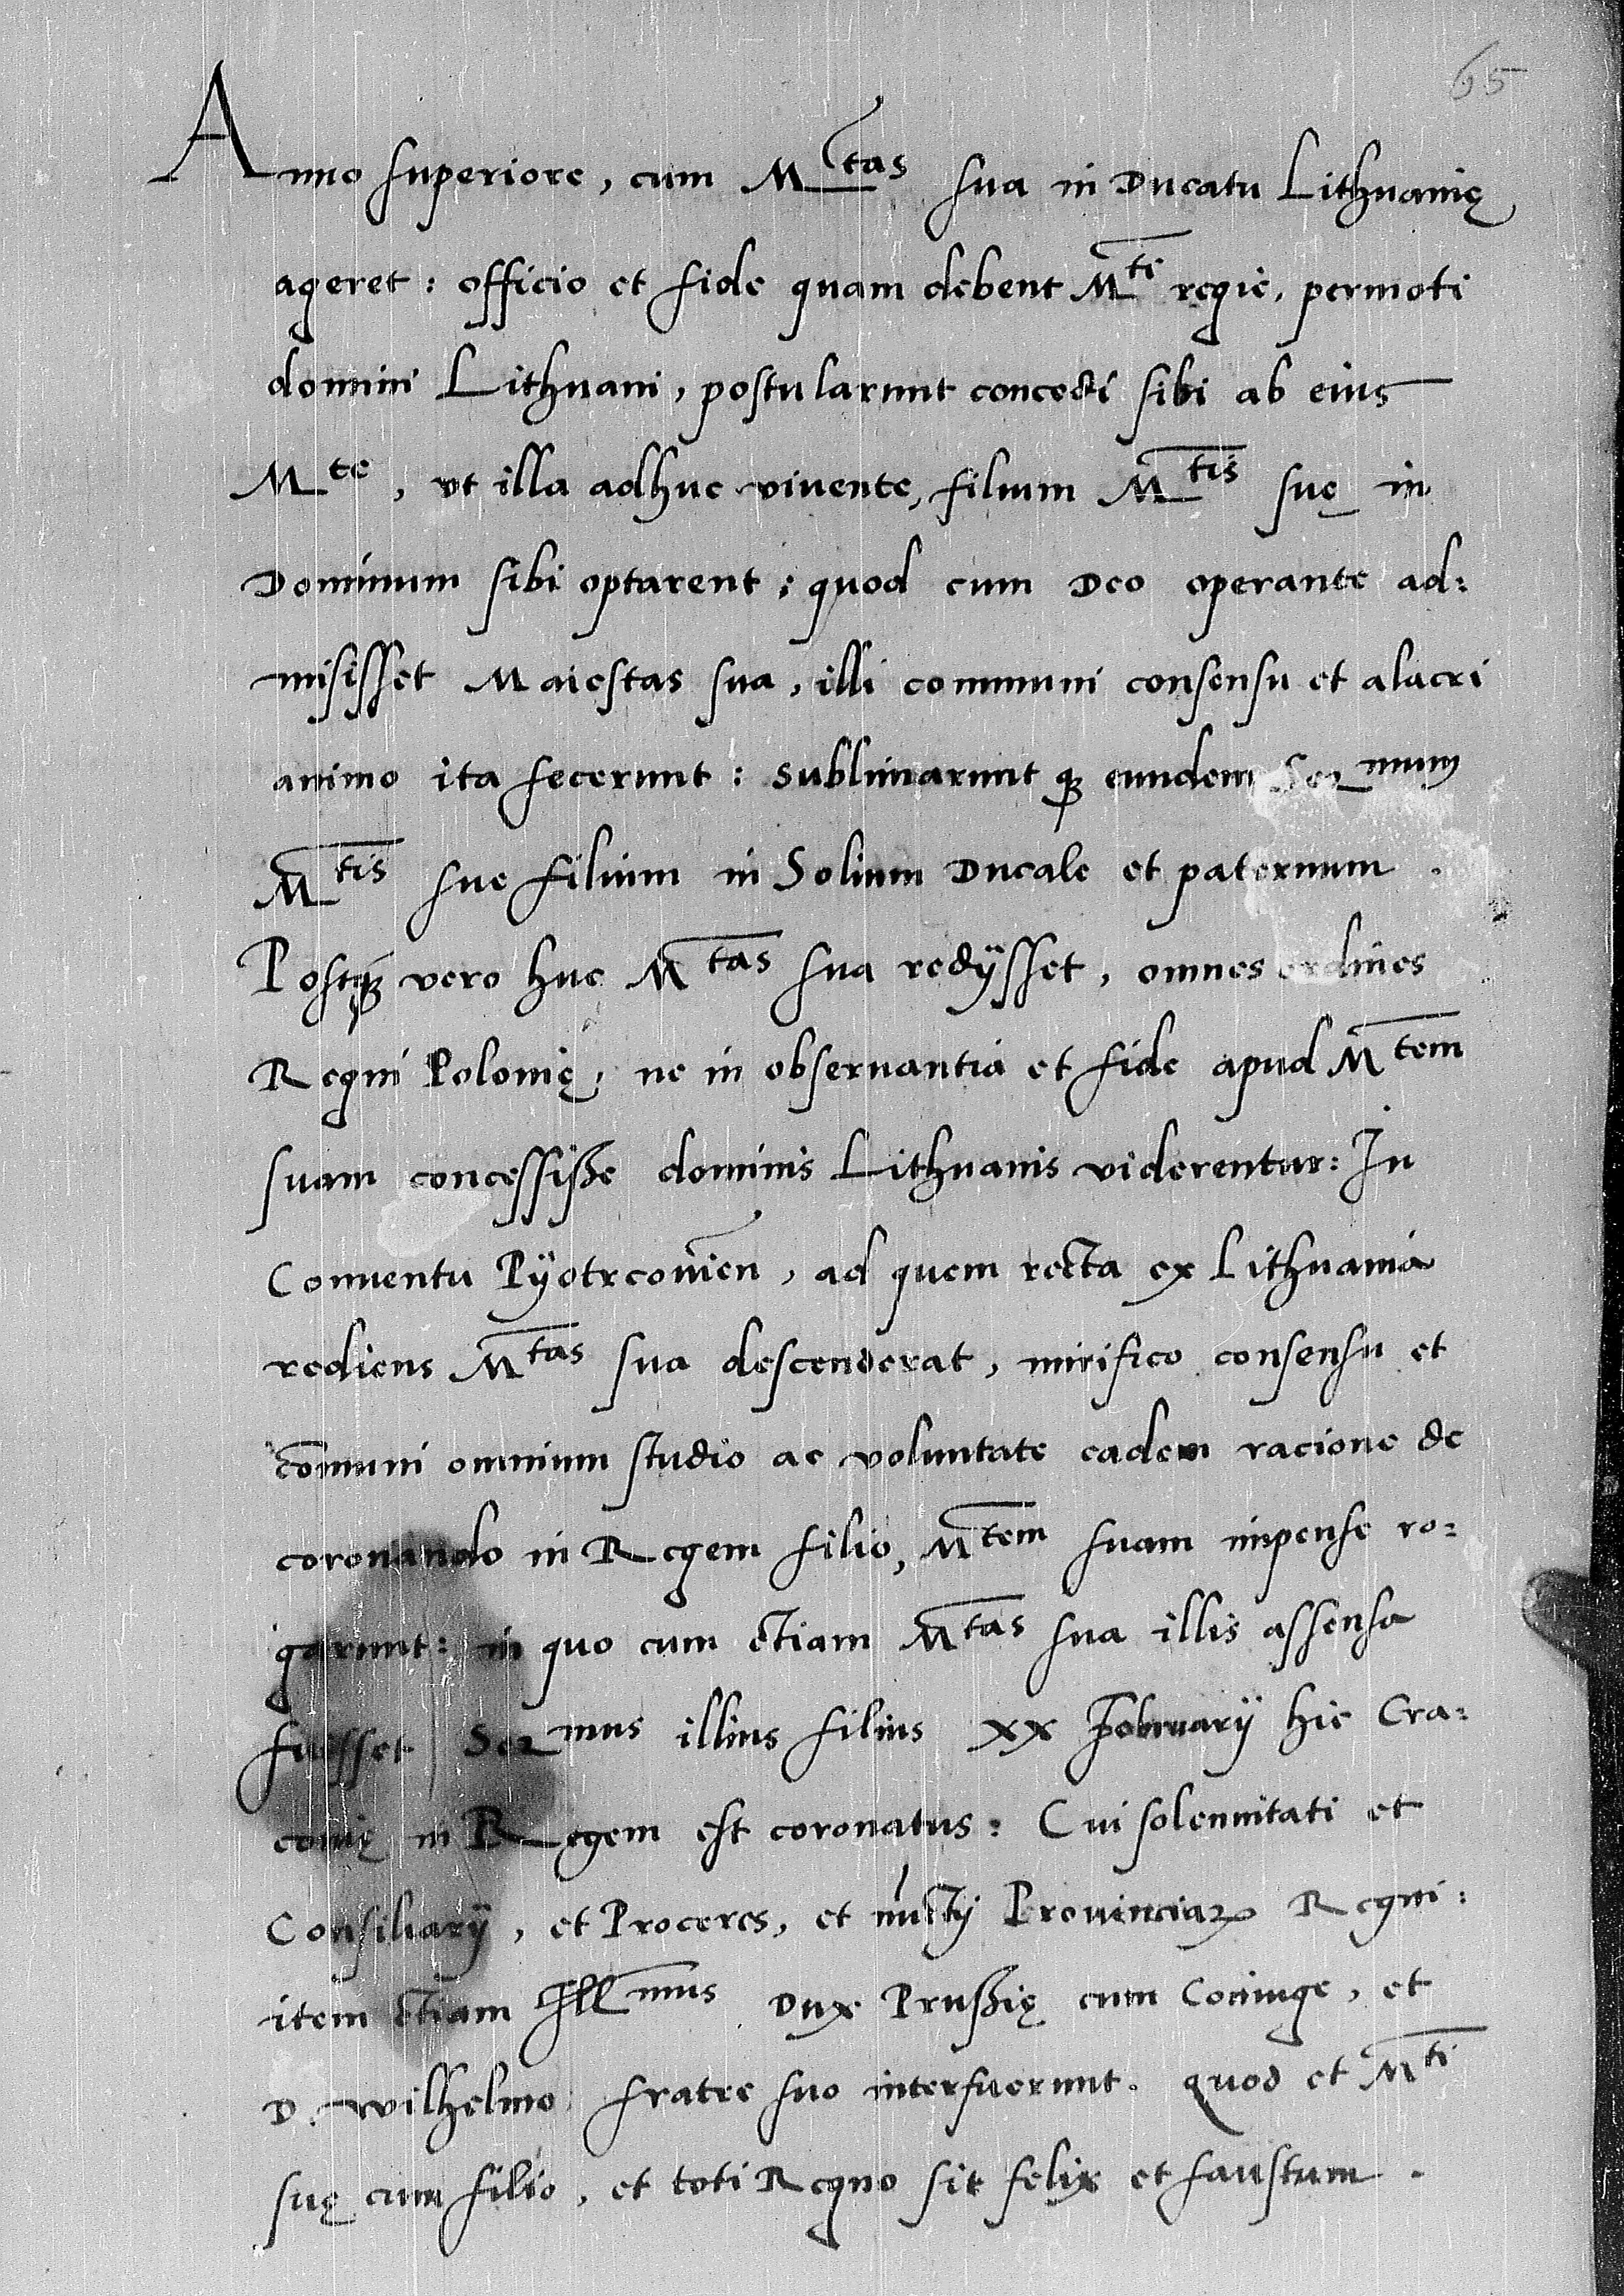 65
Anno superiore, cum M^tas sua in Ducatu Lithuanię
ageret: officio et fide quam debent M^te regie, permoti
domini Lithuani, postularunt concedi sibi ab eius
M^te, vt illa adhuc viuente, filium M^tis suę in
Dominum sibi optarent; quod cum Deo operante ad:
misisset Maiestas sua, illi communi consensu et alacri
animo ita fecerunt: sublimaruntq₃ eundem Ser^mum
M^tis sue filium in Solium Ducale et paternum.
Postq̃₃ vero huc M^tas sua redÿsset, omnes ordines
Regni Polonię, ne in obseruantia et fide apud M^tem
suam concessiße dominis Lithuanis viderentur: In
Conuentu Pÿotrcouień, ad quem recta ex Lithuania
rediens M^tas sua descenderat, mirifico consensu et
cōmuni omnium studio ac voluntate eadem racione de
coronando in Regem filio, M^tem suam impense ro:
garunt: in quo cum etiam M^tas sua illis assensa
fuisset / Ser^mus illius filius XX Februarÿ hic Cra:
couię in Regem est coronatus: Cui solennitati et
Consiliarÿ, et Proceres, et nūctÿ Prouinciaꝝ Regni:
item etiam Ill^mus Dux Prußię cum Coniuge, et
D. Wilhelmo fratre suo interfuerunt. quod et M^ti
suę cum filio, et toti Regno sit felix et faustum.